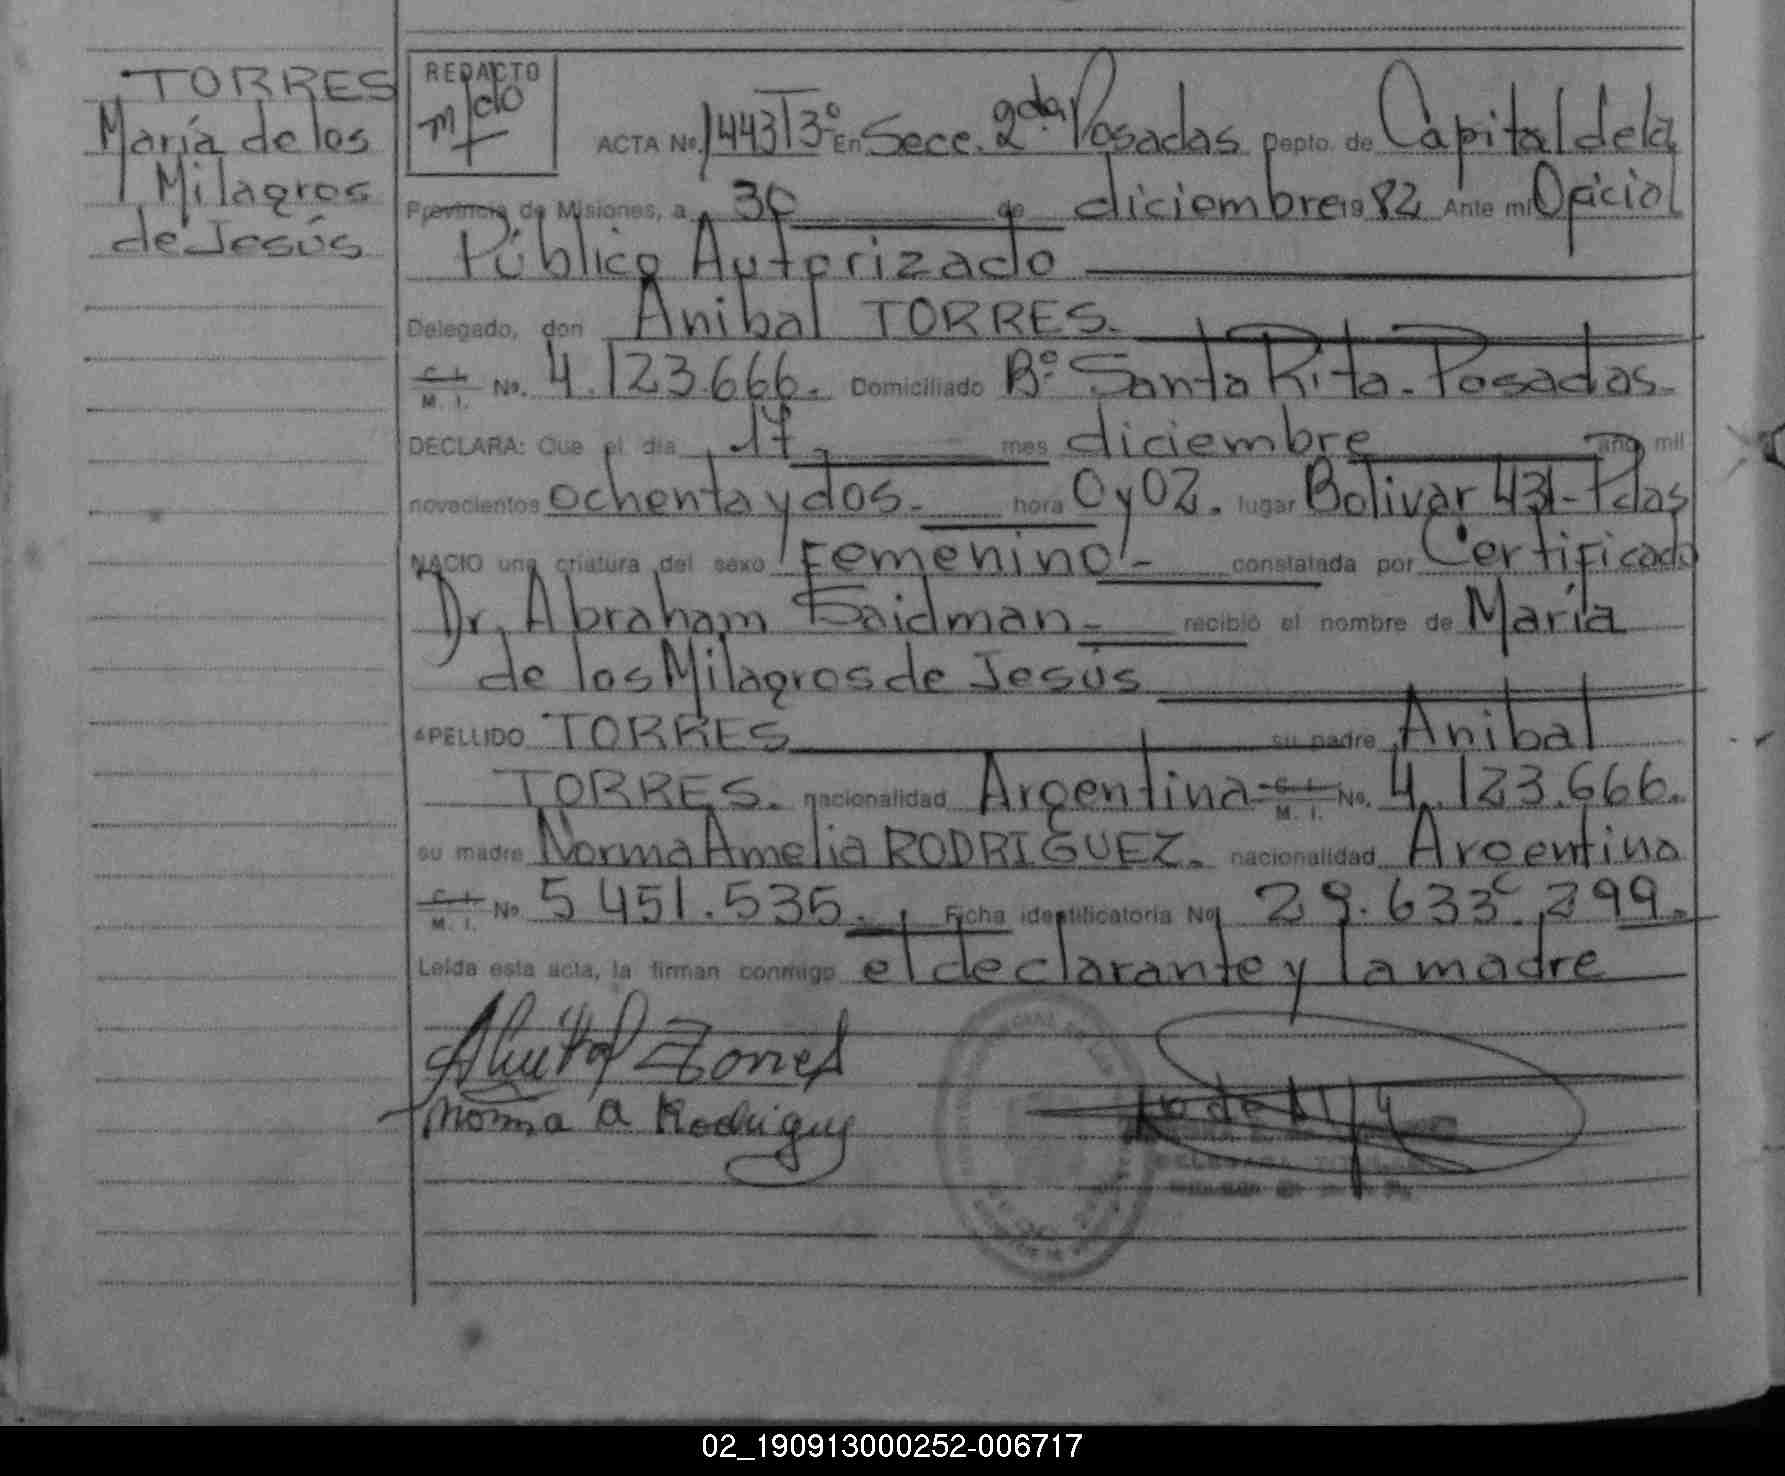 TORRES
María de los
Milagros
de Jesús
REDACTO
ACTA No. 1443 T3º En Secc. 2da. Posadas Depto. de Capital de la
Provincia de Misiones, a 30 de diciembre 1982 Ante mi Oficial
Público Autorizado
Delegado, don Anibal TORRES.
C. I. M. I. No. 4.123.666. Domiciliado Bº Santa Rita - Posadas.
DECLARA: Que el dia 17 mes diciembre año mil
novecientos ochenta y dos. hora 0 y 02. lugar Bolivar 431 - Pdas
NACIO una criatura del sexo "Femenino" - constatada por Certificado
Dr. Abraham Saidman - recibió el nombre de María
de los Milagros de Jesús
APELLIDO TORRES su padre Anibal
TORRES. nacionalidad Argentina C. I. M. I. No. 4.123.666.
su madre Norma Amelia RODRIGUEZ. nacionalidad Argentina
C. I. M. I. No. 5 451.535. Ficha identificatoria No. 29.633 299.
Leída esta acta, la firman conmigo el declarante y la madre
Anibal Torres
Norma A Rodriguez
02_190913000252-006717